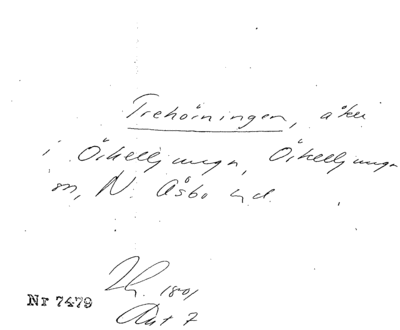 Trehörningen, åker
i Örkelljunga, Örkelljunga
sn, N. Åsbo hd.
1801
Akt 7
Nr 7479